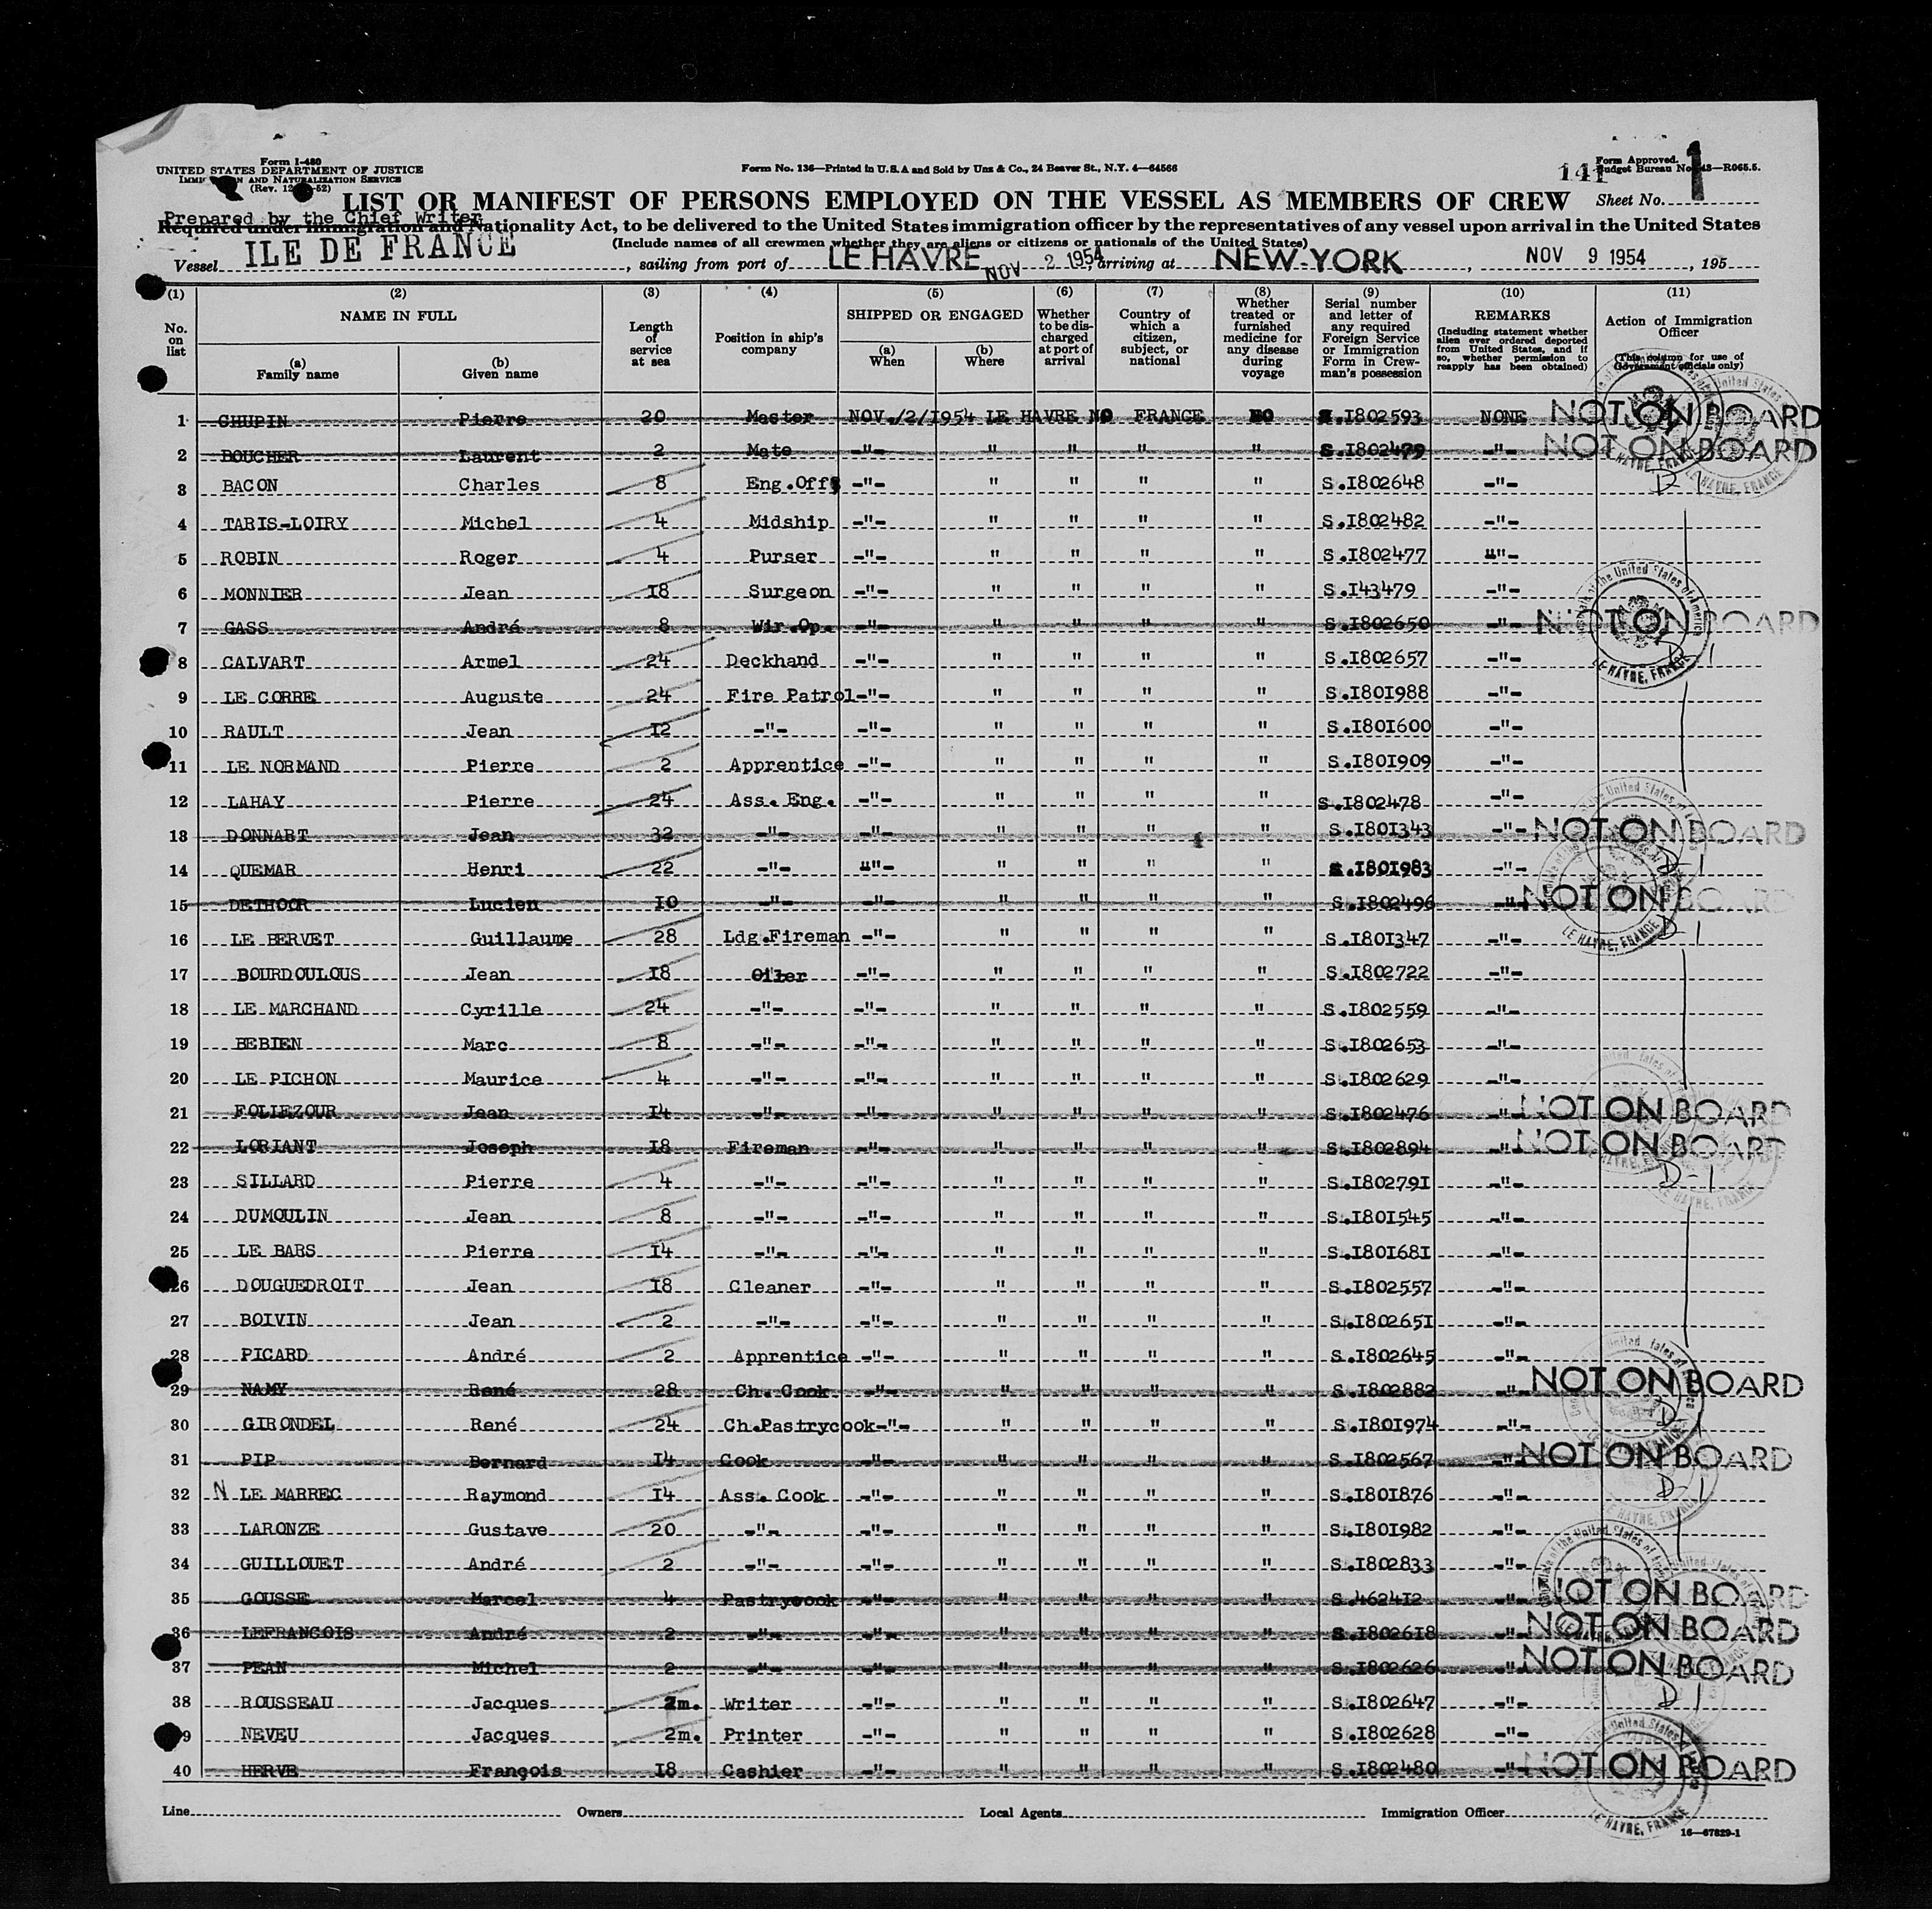 Form I-480
UNITED STATES DEPARTMENT OF JUSTICE
AND NATURALIZATION SERVICE
Form No. 136—Printed in U.S.A and Sold by Unz & Co., 24 Beaver St., N.Y. 4—64566
141
Form Approved.
Budget Bureau No. 43—R065.5.
LIST OR MANIFEST OF PERSONS EMPLOYED ON THE VESSEL AS MEMBERS OF CREW
Sheet No. 1
Prepared by the Chief Writer
Required under Immigration and Nationality Act, to be delivered to the United States immigration officer by the representatives of any vessel upon arrival in the United States
(Include names of all crewmen whether they are aliens or citizens or nationals of the United States)
Vessel ILE DE FRANCE, sailing from port of LE HAVRE NOV 2 1954, arriving at NEW-YORK, NOV 9 1954, 195
(1) No. on list
(2) NAME IN FULL
(a) Family name
(b) Given name
(3) Length of service at sea
(4) Position in ship's company
(5) SHIPPED OR ENGAGED
(a) When
(b) Where
(6) Whether to be discharged at port of arrival
(7) Country of which a citizen, subject, or national
(8) Whether treated or furnished medicine for any disease during voyage
(9) Serial number and letter of any required Foreign Service or Immigration Form in Crewman's possession
(10) REMARKS
(Including statement whether alien ever ordered deported from United States, and if so, whether permission to reapply has been obtained)
(11) Action of Immigration Officer
(This column for use of Government officials only)
1 CHUPIN Pierre 20 Master NOV./2/1954 LE HAVRE NO FRANCE NO S.I802593 NONE NOT ON BOARD
2 BOUCHER Laurent 2 Mate -"- " " " " S.I802479 -"- NOT ON BOARD
3 BACON Charles 8 Eng.Off -"- " " " " S.I802648 -"- D-1
4 TARIS-LOIRY Michel 4 Midship -"- " " " " S.I802482 -"-
5 ROBIN Roger 4 Purser -"- " " " " S.I802477 -"-
6 MONNIER Jean I8 Surgeon -"- " " " " S.I43479 -"-
7 GASS André 8 Wir.Op. -"- " " " " S.I802650 -"- NOT ON BOARD
8 CALVART Armel 24 Deckhand -"- " " " " S.I802657 -"- D-1
9 LE CORRE Auguste 24 Fire Patrol -"- " " " " S.I80I988 -"-
10 RAULT Jean I2 -"- -"- " " " " S.I80I600 -"-
11 LE NORMAND Pierre 2 Apprentice -"- " " " " S.I80I909 -"-
12 LAHAY Pierre 24 Ass. Eng. -"- " " " " S.I802478 -"-
13 DONNART Jean 32 -"- -"- " " " " S.I80I343 -"- NOT ON BOARD
14 QUEMAR Henri 22 -"- -"- " " " " S.I80I983 -"- D-1
15 DETHOOR Lucien I0 -"- -"- " " " " S.I802496 -"- NOT ON BOARD
16 LE BERVET Guillaume 28 Ldg.Fireman -"- " " " " S.I80I347 -"- D-1
17 BOURDOULOUS Jean I8 Oiler -"- " " " " S.I802722 -"-
18 LE MARCHAND Cyrille 24 -"- -"- " " " " S.I802559 -"-
19 BEBIEN Marc 8 -"- -"- " " " " S.I802653 -"-
20 LE PICHON Maurice 4 -"- -"- " " " " S.I802629 -"-
21 FOLIEZOUR Jean I4 -"- -"- " " " " S.I802476 -"- NOT ON BOARD
22 LORIANT Joseph I8 Fireman -"- " " " " S.I802894 -"- NOT ON BOARD
23 SILLARD Pierre 4 -"- -"- " " " " S.I80279I -"- D-1
24 DUMOULIN Jean 8 -"- -"- " " " " S.I80I545 -"-
25 LE BARS Pierre I4 -"- -"- " " " " S.I80I68I -"-
26 DOUGUEDROIT Jean I8 Cleaner -"- " " " " S.I802557 -"-
27 BOIVIN Jean 2 -"- -"- " " " " S.I80265I -"-
28 PICARD André 2 Apprentice -"- " " " " S.I802645 -"-
29 NAMY René 28 Ch. Cook -"- " " " " S.I802882 -"- NOT ON BOARD
30 GIRONDEL René 24 Ch.Pastrycook -"- " " " " S.I80I974 -"- D-1
31 PIP Bernard I4 Cook -"- " " " " S.I802567 -"- NOT ON BOARD
32 N LE MARREC Raymond I4 Ass. Cook -"- " " " " S.I80I876 -"- D-1
33 LARONZE Gustave 20 -"- -"- " " " " S.I80I982 -"-
34 GUILLOUET André 2 -"- -"- " " " " S.I802833 -"-
35 GOUSSE Marcel 4 Pastrycook -"- " " " " S.4624I2 -"- NOT ON BOARD
36 LEFRANCOIS André 2 -"- -"- " " " " S.I8026I8 -"- NOT ON BOARD
37 PEAN Michel 2 -"- -"- " " " " S.I802626 -"- NOT ON BOARD
38 ROUSSEAU Jacques 2m. Writer -"- " " " " S.I802647 -"- D-1
39 NEVEU Jacques 2m. Printer -"- " " " " S.I802628 -"-
40 HERVE François I8 Cashier -"- " " " " S.I802480 -"- NOT ON BOARD
LE HAVRE, FRANCE
Line Owners Local Agents Immigration Officer
16—67829-1